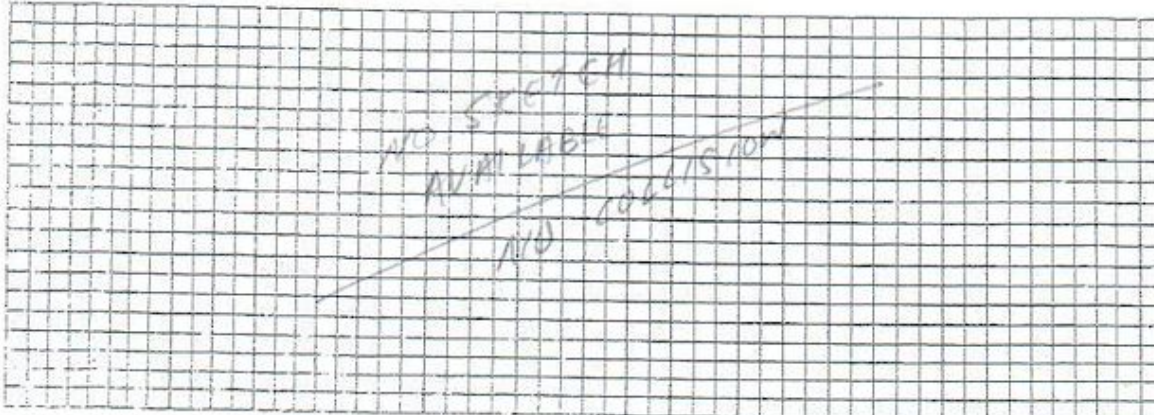 NO SKETCH
AVAILABLE
NO COLLISION